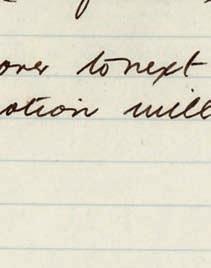 over to next
otion will